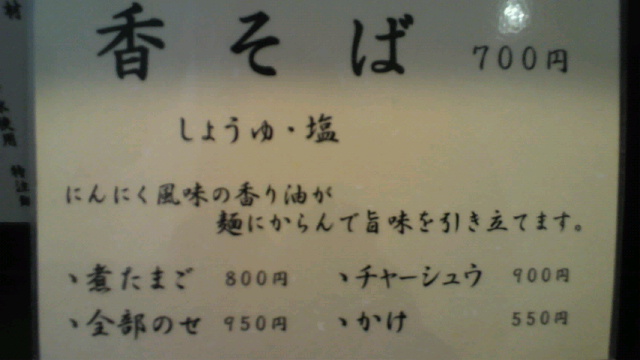 材
本
使用
特注
香そば 700円
しょうゆ・塩
にんにく風味の香り油が
麺にからんで旨味を引き立てます。
、煮たまご 800円 、チャーシュウ 900円
、全部のせ 950円 、かけ 550円